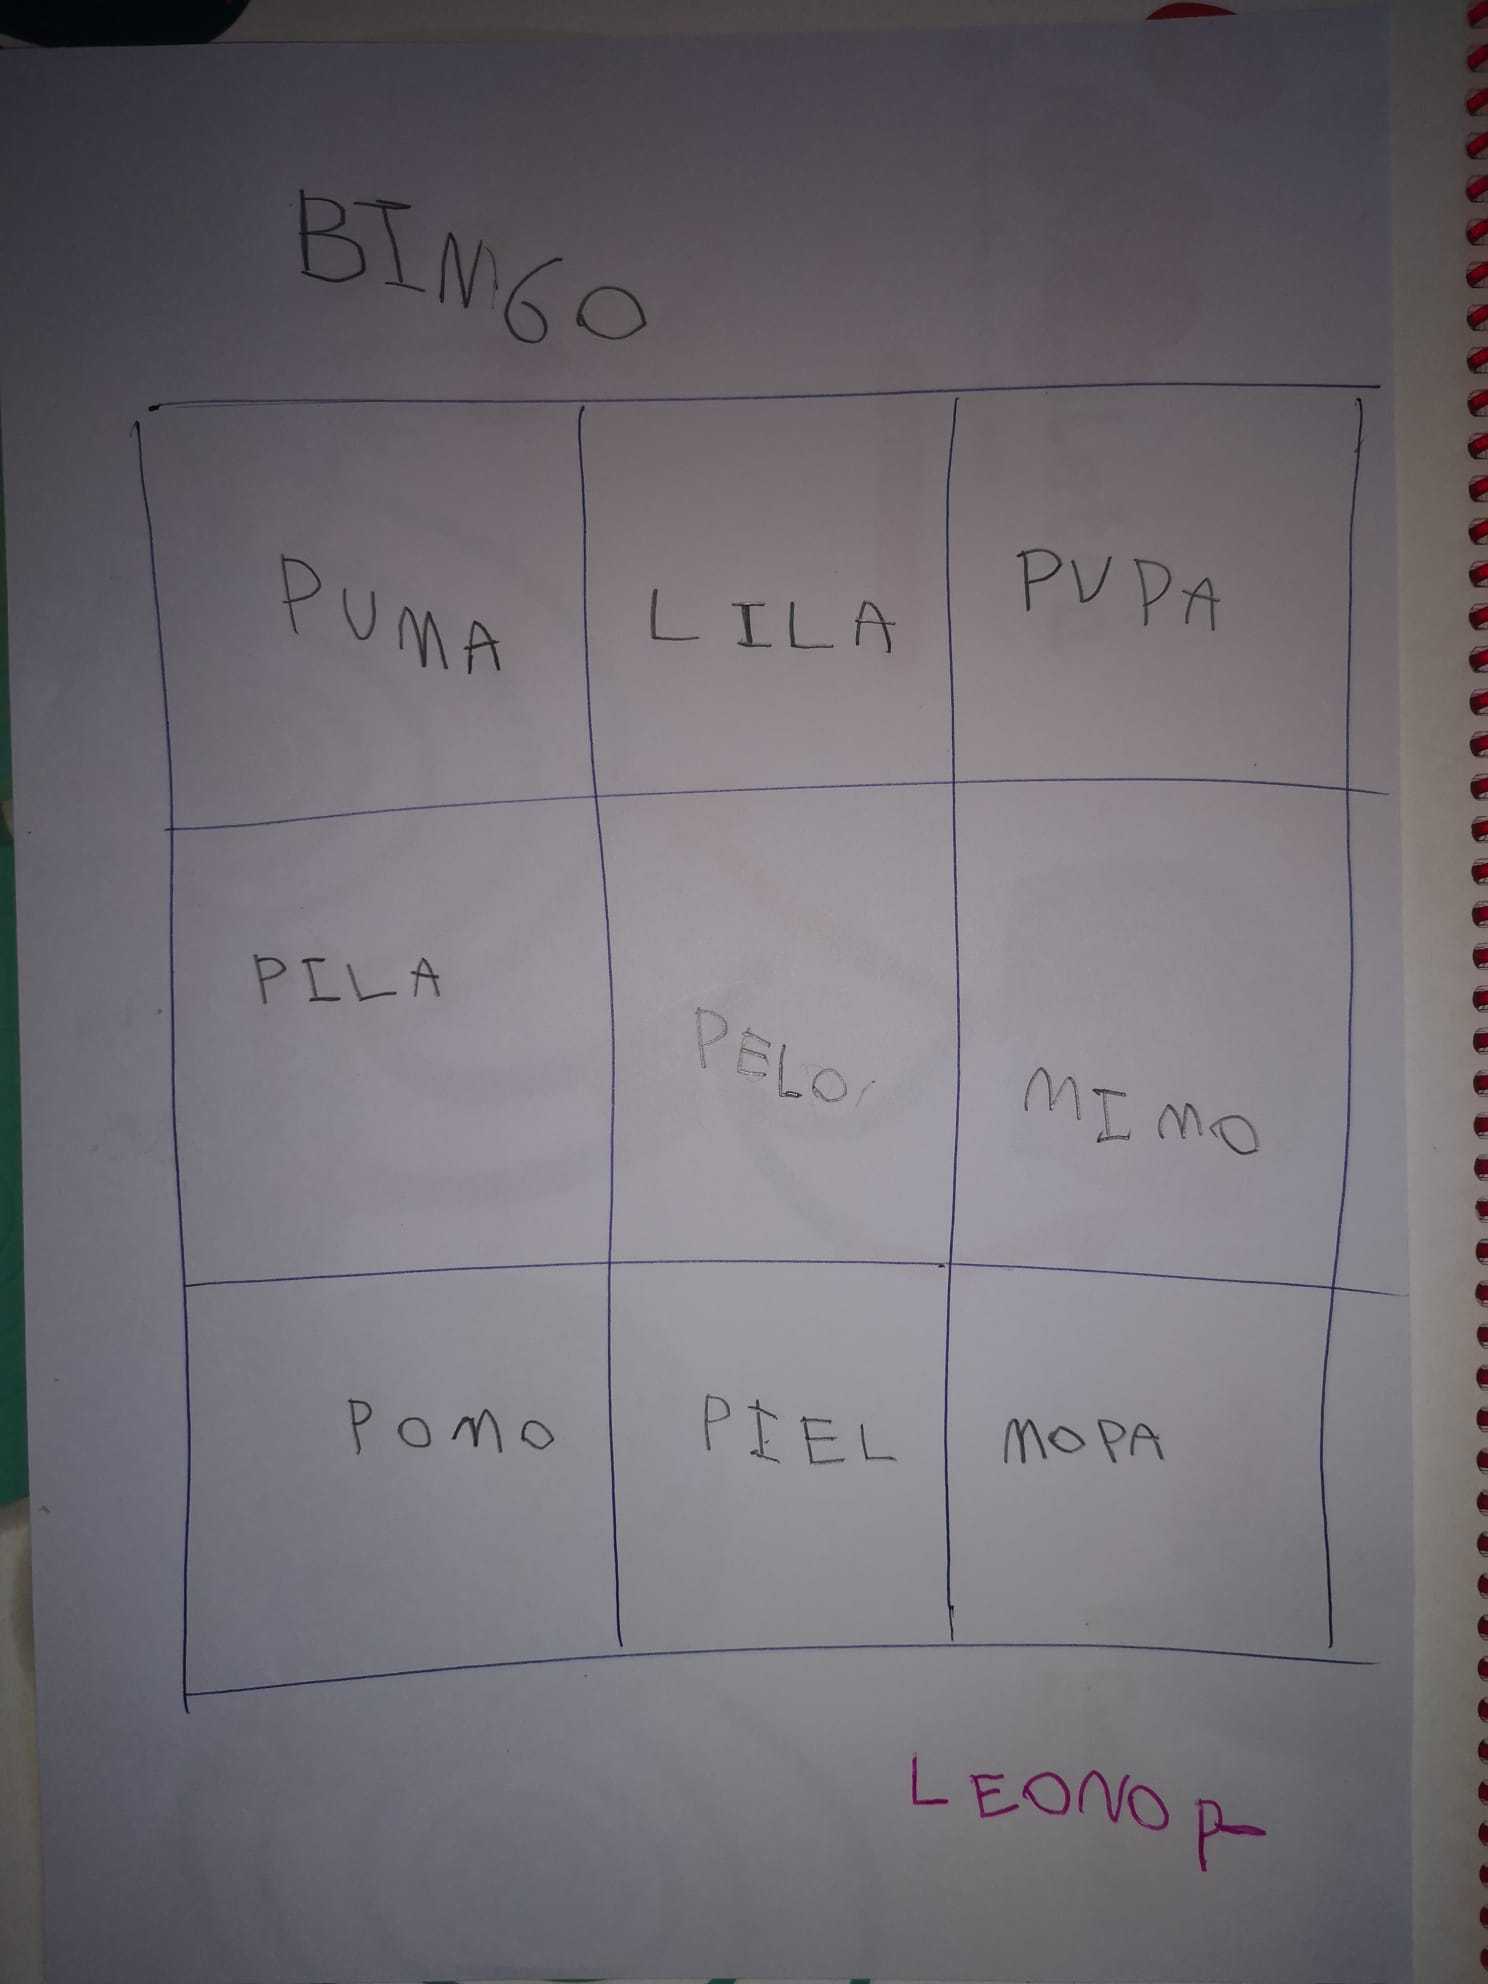 BINGO
PUMA LILA PUPA
PILA PELO MIMO
POMO PIEL MOPA
LEONOR